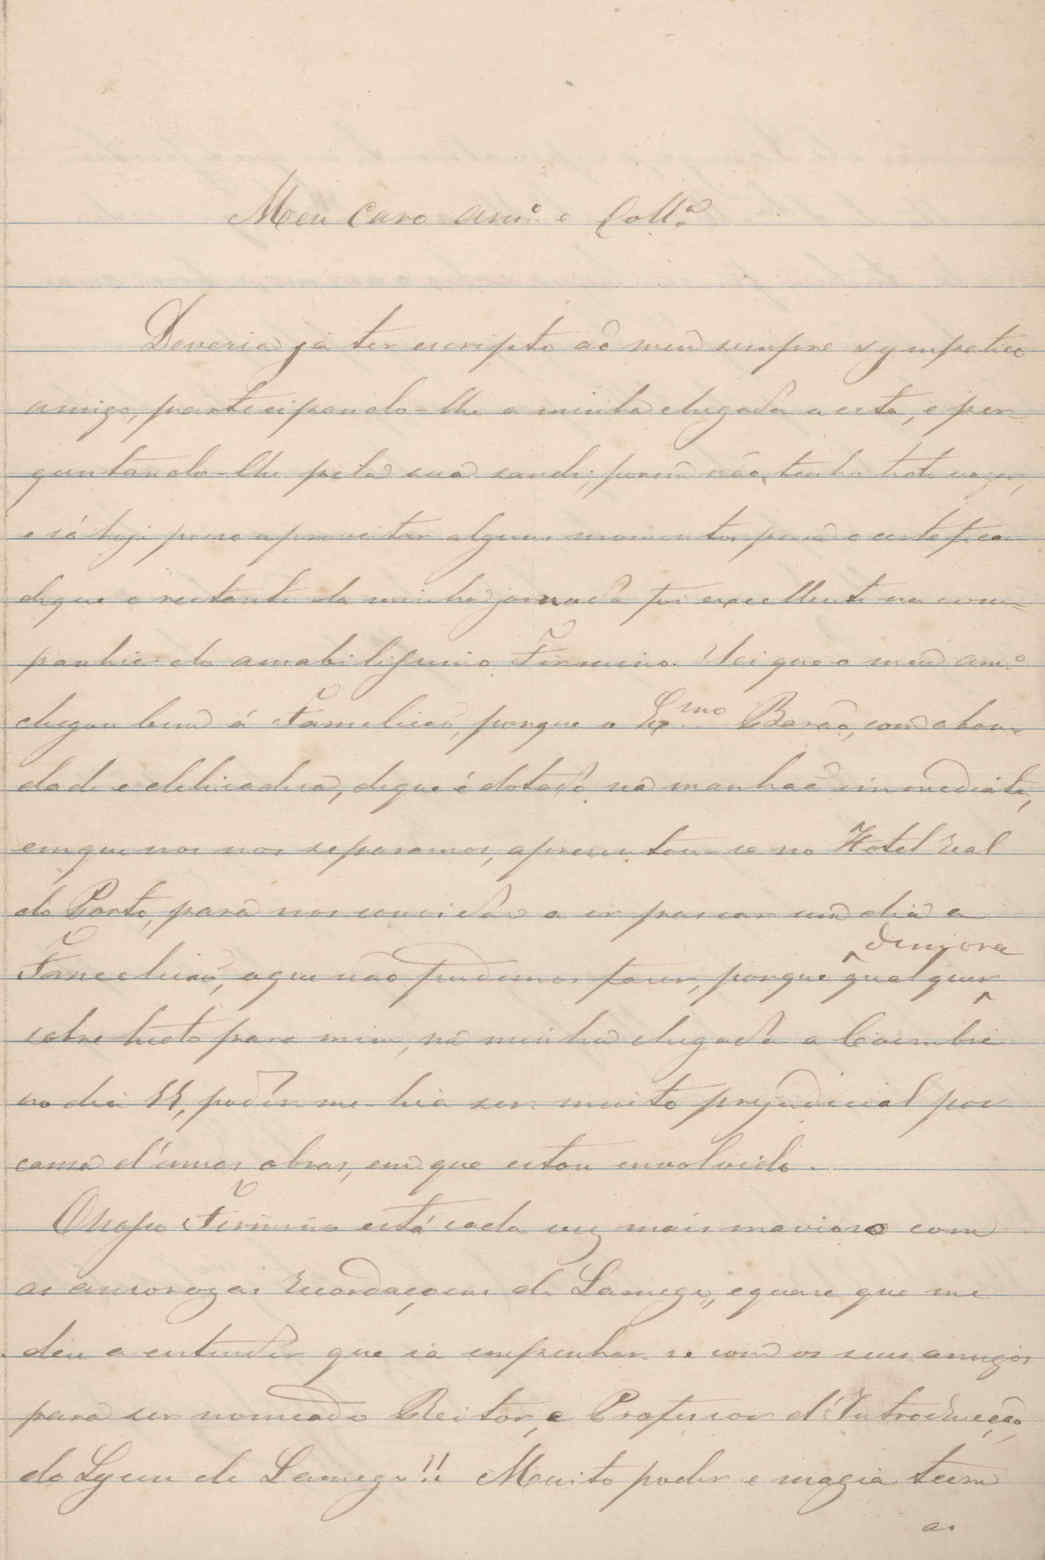 Meu Caro am.º e Coll.ª
Deveria já ter escripto ao meu sempre sympatico
amigo, participando-lhe a minha chegada a esta, e per-
guntando-lhe pela sua saude; porem não tenho tido vagar,
e só hoje posso aproveitar alguns momentos para o certeficar
de que o restante da minha jornada foi excellente na com-
panhia do amabilissimo Firmino. Sei que o meu am.º
chegou bem á Famelicão, porque o Ex.mo Barão, com a bon-
dade e delicadesa, de que é dotado, na manhaã immediata,
em que nos nos separamos, apresentou-se no Hotel Real
do Porto, para nos convidar a ir passar um dia a
Famelicão, a que não pudemos fazer, porque qualquer demora
sobre tudo para mim, na minha chegada a Coimbra
no dia 11, poder-me-hia ser muito prejudicial por
causa d'umas obras, em que estou envolvido.
O nosso Firmino está cada vez mais mavioso com
as amorozas recordaçoens de Lamego, e quase que me
deu a entender que ia empenhar-se com os seus amigos
para ser nomeado Reitor, e Professor d'Introducção,
do Lyceu de Lamego!! Muito poder e magia teem
as